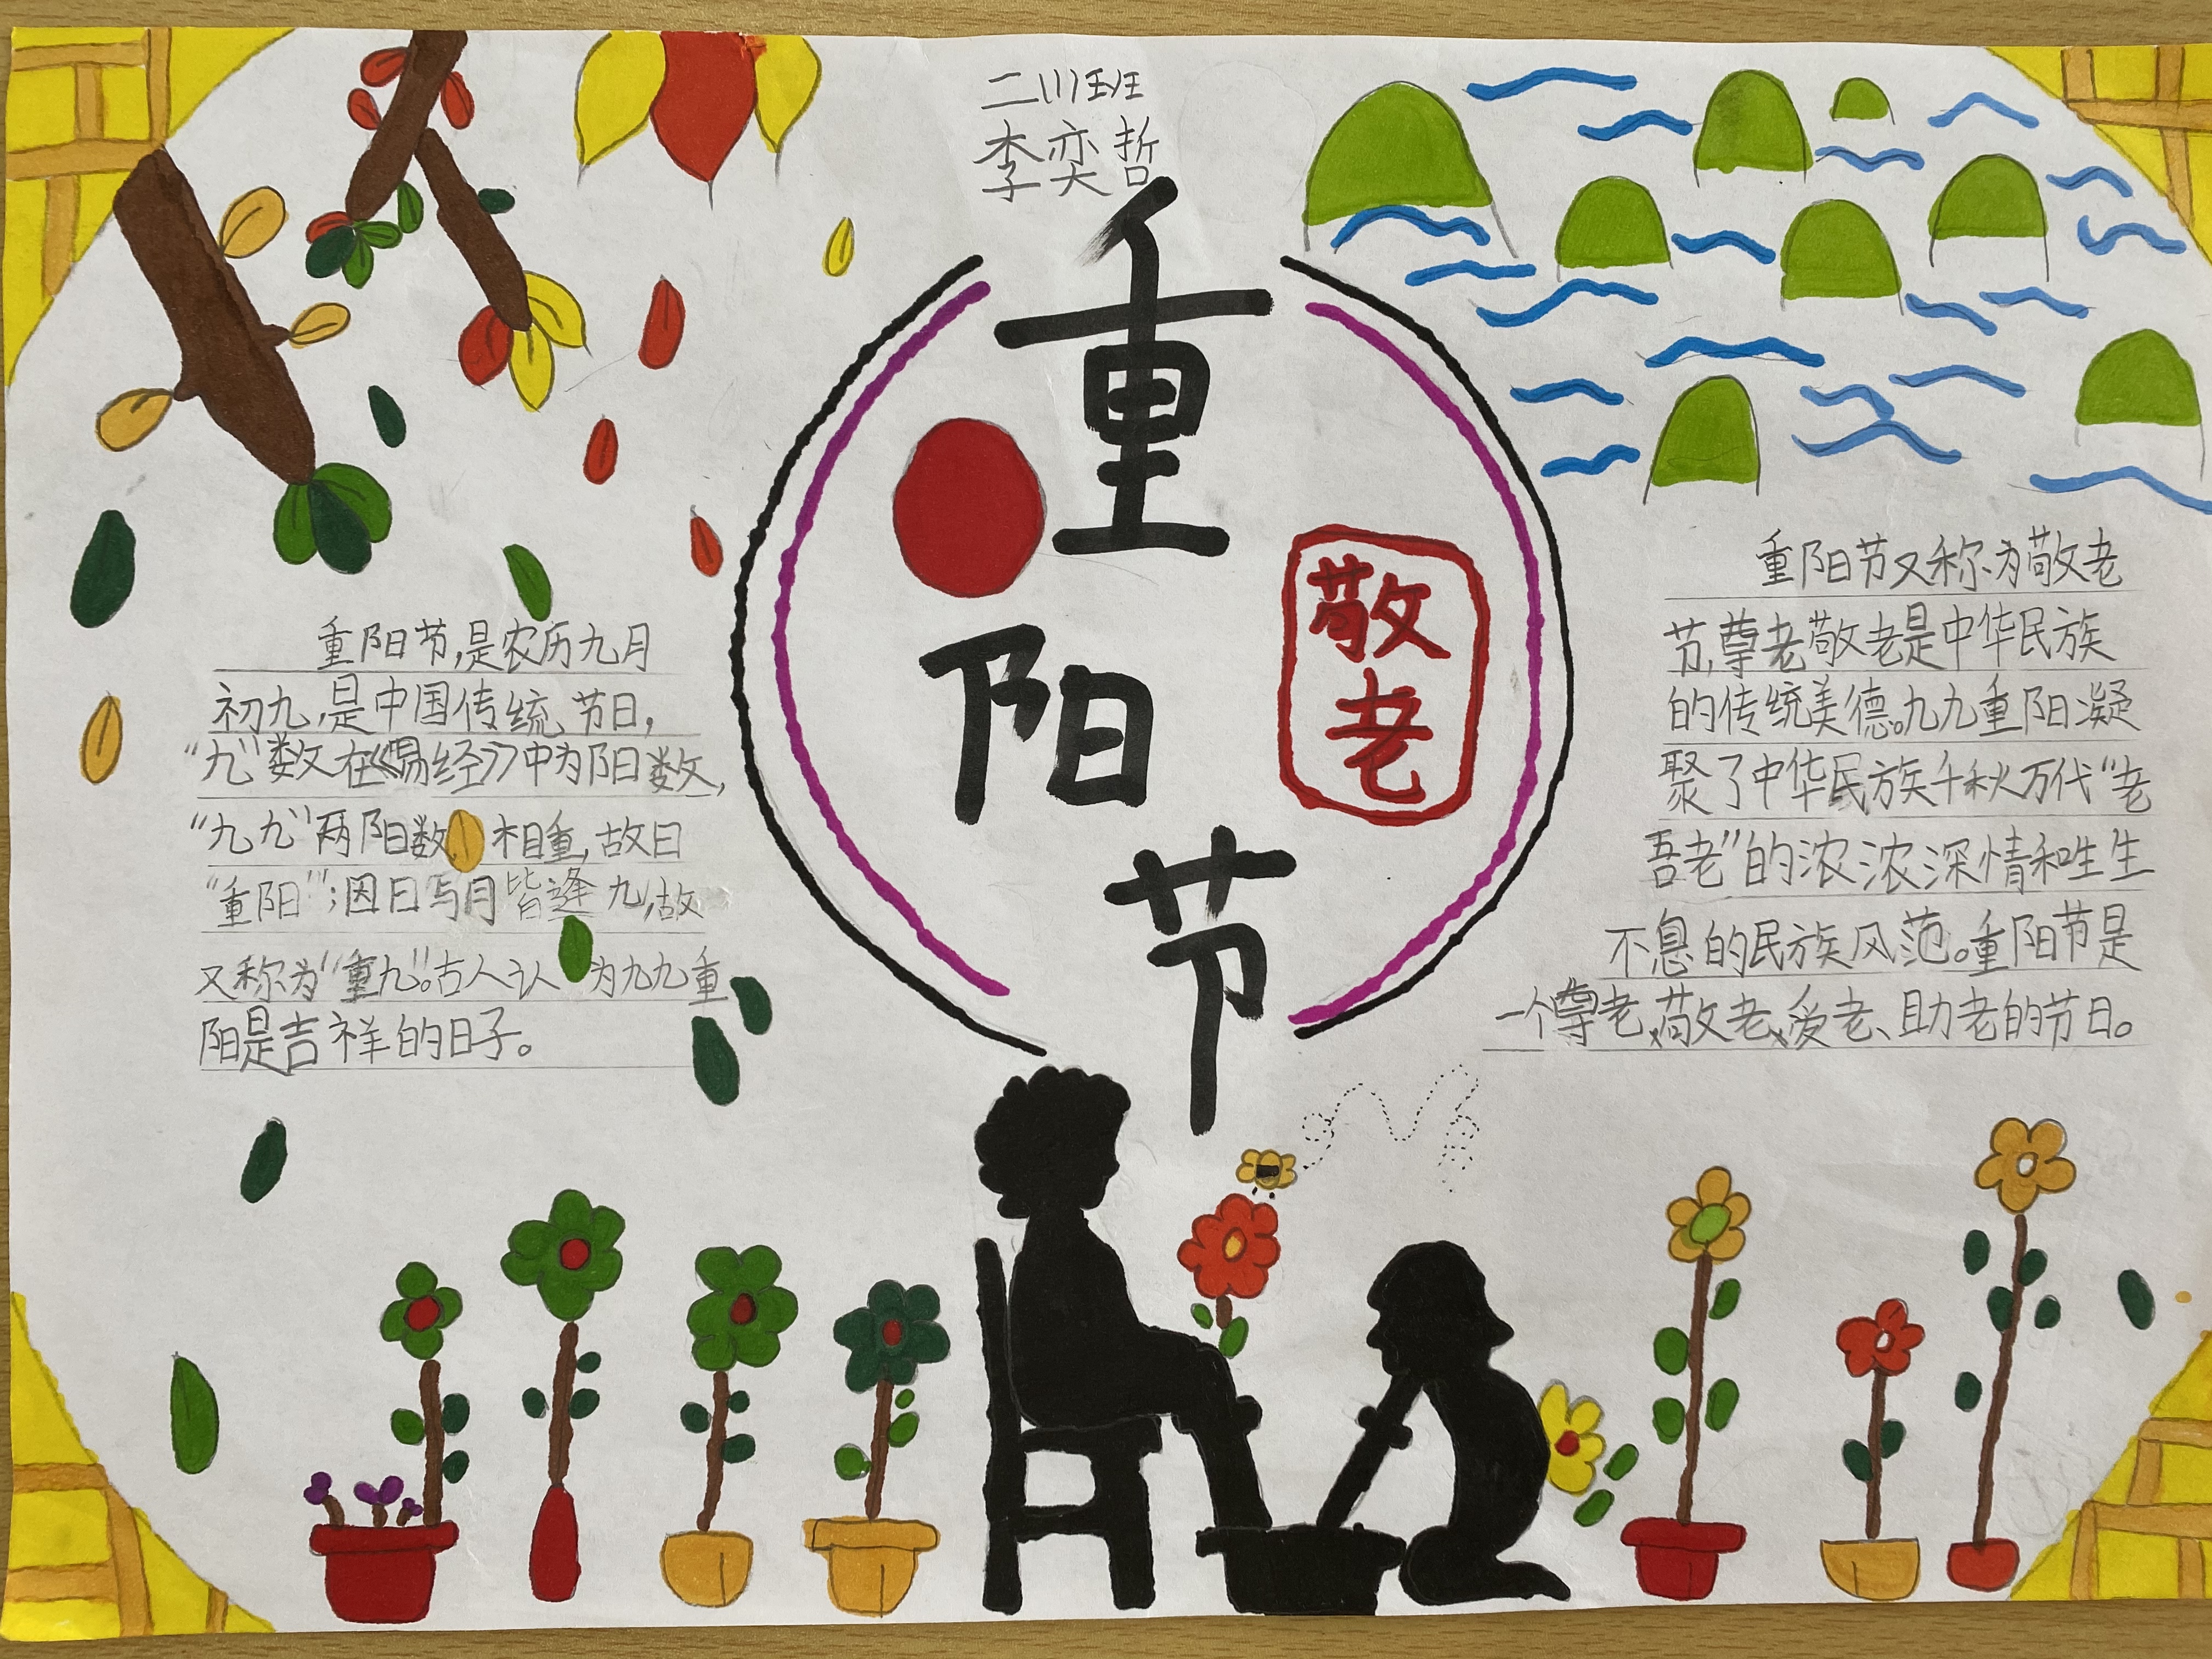 二(1)班
李奕哲
重
阳
节
敬
老
重阳节,是农历九月
初九,是中国传统节日,
“九”数在《易经》中为阳数,
“九九”两阳数相重,故曰
“重阳”;因日与月皆逢九,故
又称为“重九”。古人认为九九重
阳是吉祥的日子。
重阳节又称为敬老
节,尊老敬老是中华民族
的传统美德。九九重阳凝
聚了中华民族千秋万代“老
吾老”的浓浓深情和生生
不息的民族风范。重阳节是
一个尊老、敬老、爱老、助老的节日。